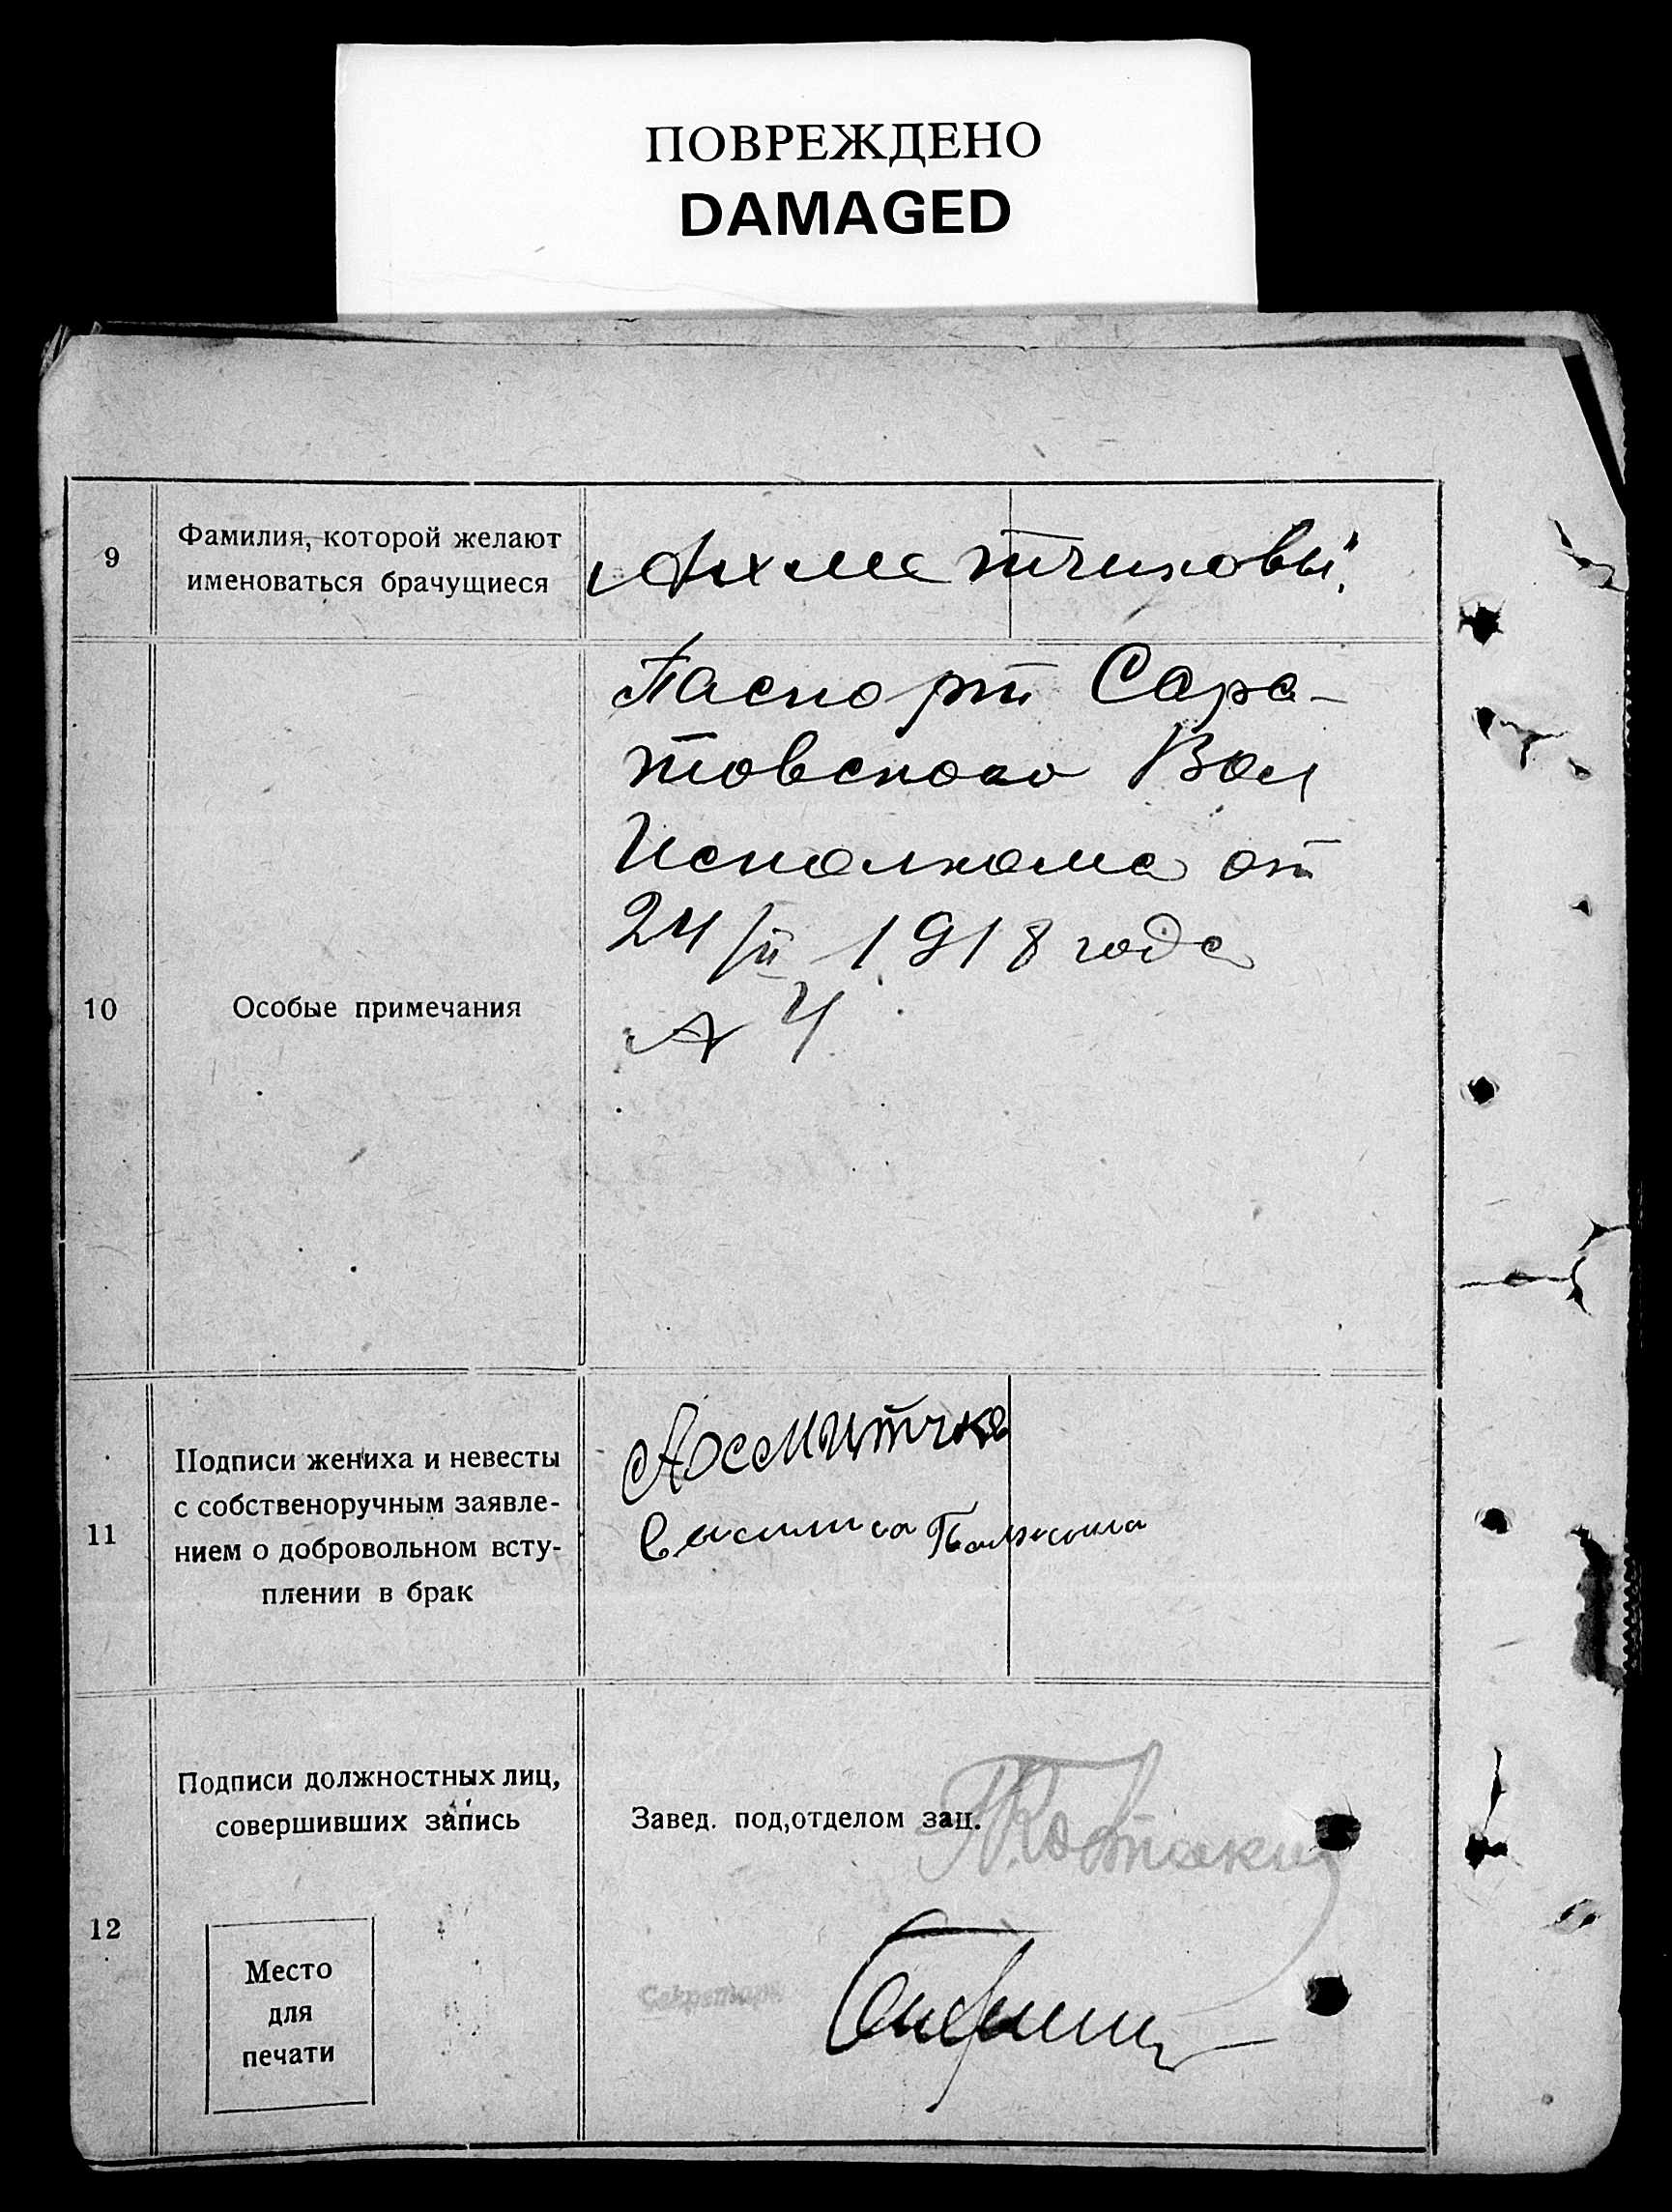 ПОВРЕЖДЕНО
DAMAGED
9
Фамилия, которой желают
именоваться брачущиеся
Ахметчиковы
10
Особые примечания
Паспорт Сара-
товского Вол
Исполкома от
24/II 1918 года
№ 4
11
Подписи жениха и невесты
с собственоручным заявле-
нием о добровольном всту-
плении в брак
Василиса
12
Подписи должностных лиц,
совершивших запись
Завед. под,отделом зац.
Секретарь
Место
для
печати